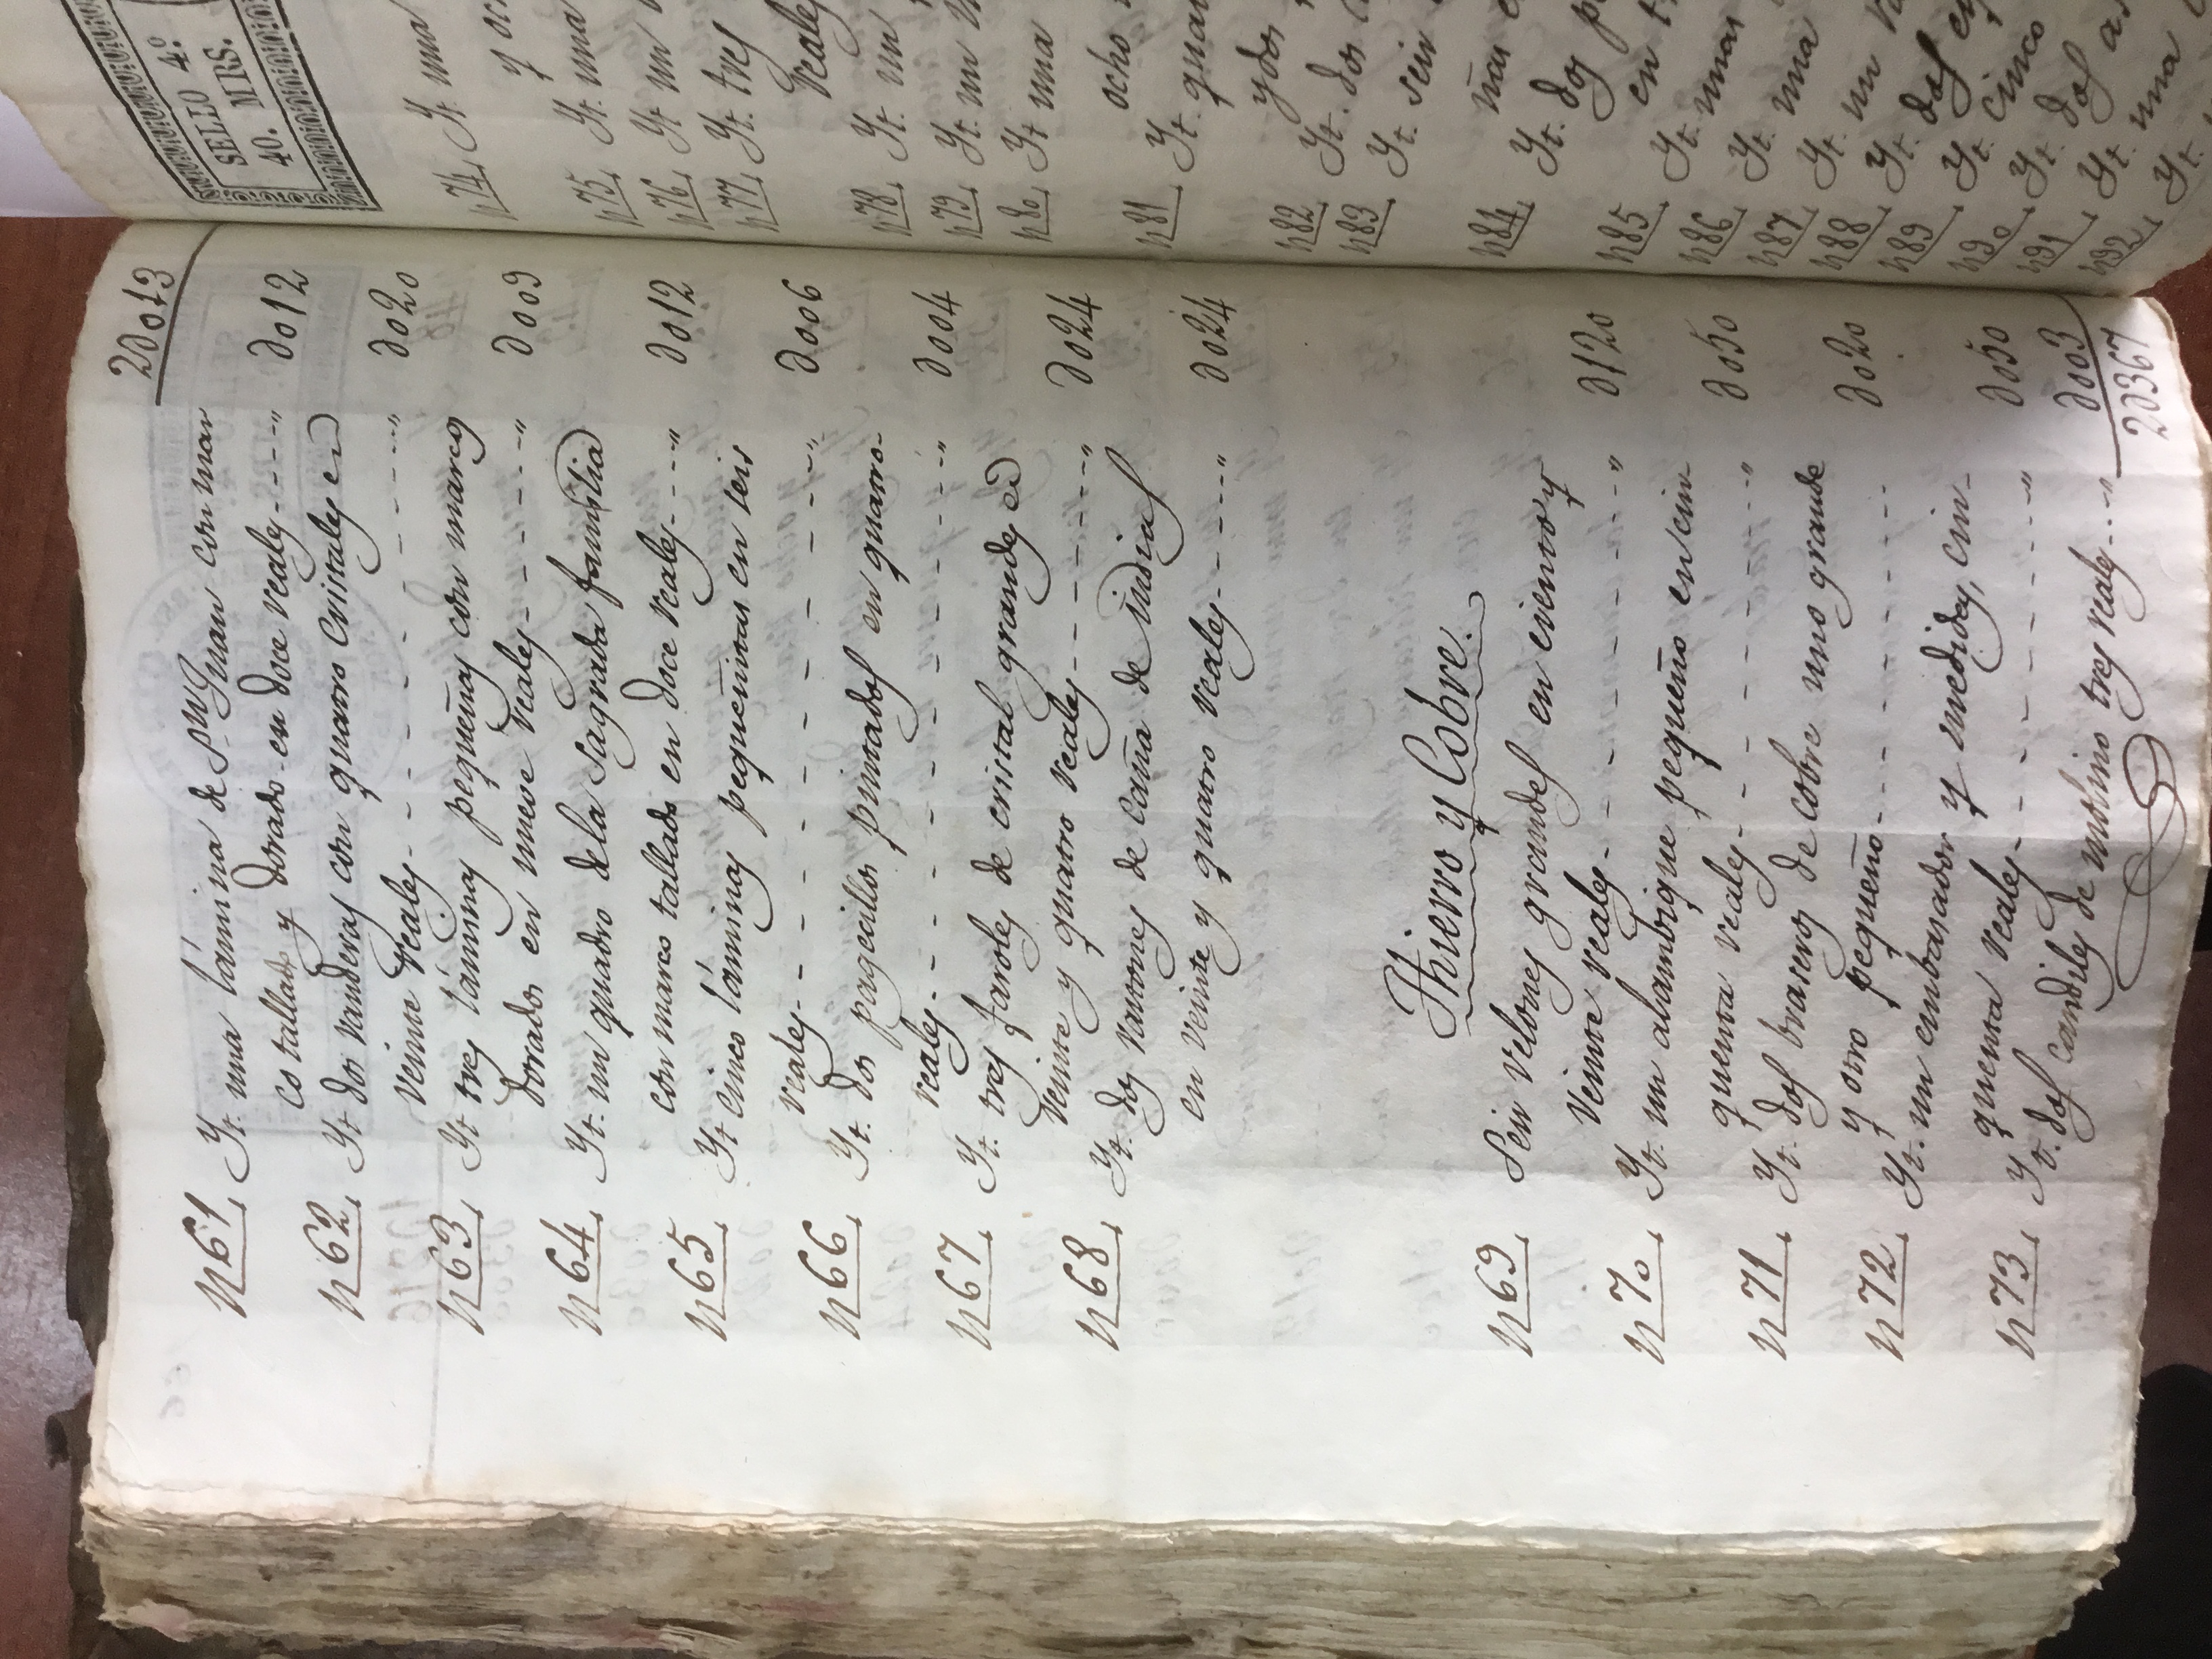 2d013
N 61, Yt. una lámina de Sn. Juan con mar
co tallado y dorado en doce reales - - - - " d012
N 62, Yt dos vanderas con quatro cristales en
veinte reales - - - - - - - - - " d020
N 63, Yt tres láminas pequeñas con marcos
dorados en nueve reales - - - - - " d009
N 64, Yt. un quadro de la Sagrada familia
con marco tallado en doce reales - - - - " d012
N 65, Yt cinco láminas pequeñitas en seis
reales - - - - - - - - - " d006
N 66, Yt. dos pagecillos pintados en quatro-
reales - - - - - - - - - " d004
N 67, Yt. tres faroles de cristal grandes en
veinte y quatro reales - - - - - - " d024
N 68, Yt. dos vastones de caña de indias
en veinte y quatro reales - - - - - " d024
Hierro y Cobre.
N 69, Seis velones grandes en ciento y
veinte reales - - - - - - - - " d120
N 70, Yt. un alambique pequeño en cin
quenta reales - - - - - - - - " d050
N 71, Yt. dos braseros de cobre uno grande
y otro pequeño - - - - - - - - d020
N 72, Yt. un embasador y medidas, cin-
quenta reales - - - - - - - - " d050
N 73, Yt. dos candiles de molino tres reales - - - " d003
2d367
SELLO 4º
40. MRS.
N 74, Yt una
y
N 75, Yt una
N 76, Yt un
N 77, Yt. tres
reales
N 78, Yt. un
N 79, Yt. un
N 80, Yt una
ocho
N 81, Yt.
y dos
N 82, Yt. dos
N 83, Yt. seis
N 84, Yt. dos
en
N 85, Yt. unas
N 86, Yt. una
N 87, Yt. un
N 88, Yt. dos
N 89, Yt. cinco
N 90, Yt. dos
N 91, Yt. una
N 92, Yt.